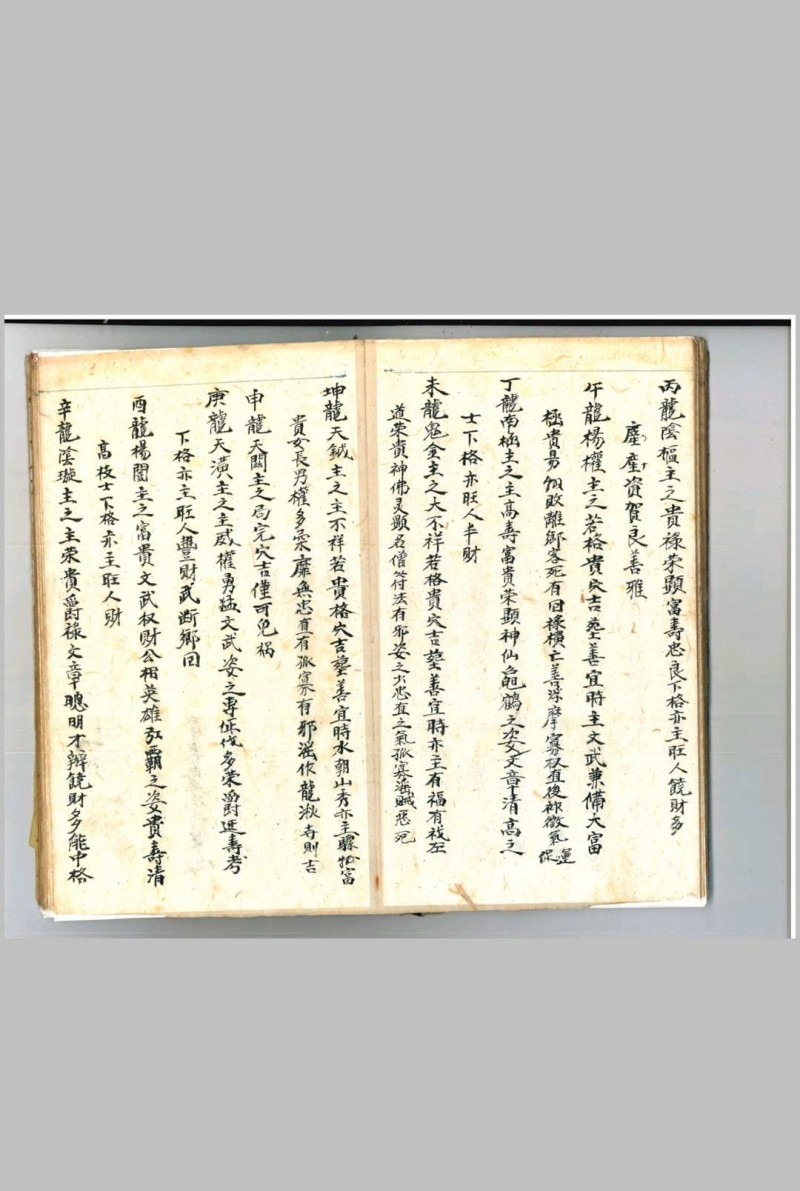 丙龍陰樞主之貴祿荣顯富寿忠良下格亦主旺人饒財多
產資賀良善雅
午龍楊權主之若格貴穴吉塟善宜時主文武兼備大富
極貴易敗離鄉客死有回祿橫亡善後微氣運保
丁龍南極主之主高壽富貴荣顯神仙龜鶴之姿文章清高之
士下格亦旺人半財
未龍鬼金主之大不祥若格貴穴吉塟善宜時亦主有福有
道荣貴神佛灵顯名僧符法有邪姿之忠直之氣孤寡海賊惡死
坤龍天鉞主之主不祥若貴格穴吉塟善宜時水朝山秀亦主驟富
貴女長男權多柔靡無忠直有孤寡有邪滛作龍湫寺則吉
申龍天関主之局完穴吉僅可免禍
庚龍天潢主之主威權勇猛文武姿之專征伐多荣爵延壽考
下格亦主旺人豐財武断鄉回
酉龍楊闓主之富貴文武权財公相英雄弘霸之姿貴壽清
高枝士下格亦主旺人財
辛龍陰璇主之主荣貴爵祿文章聰明才辨饒財多能中格